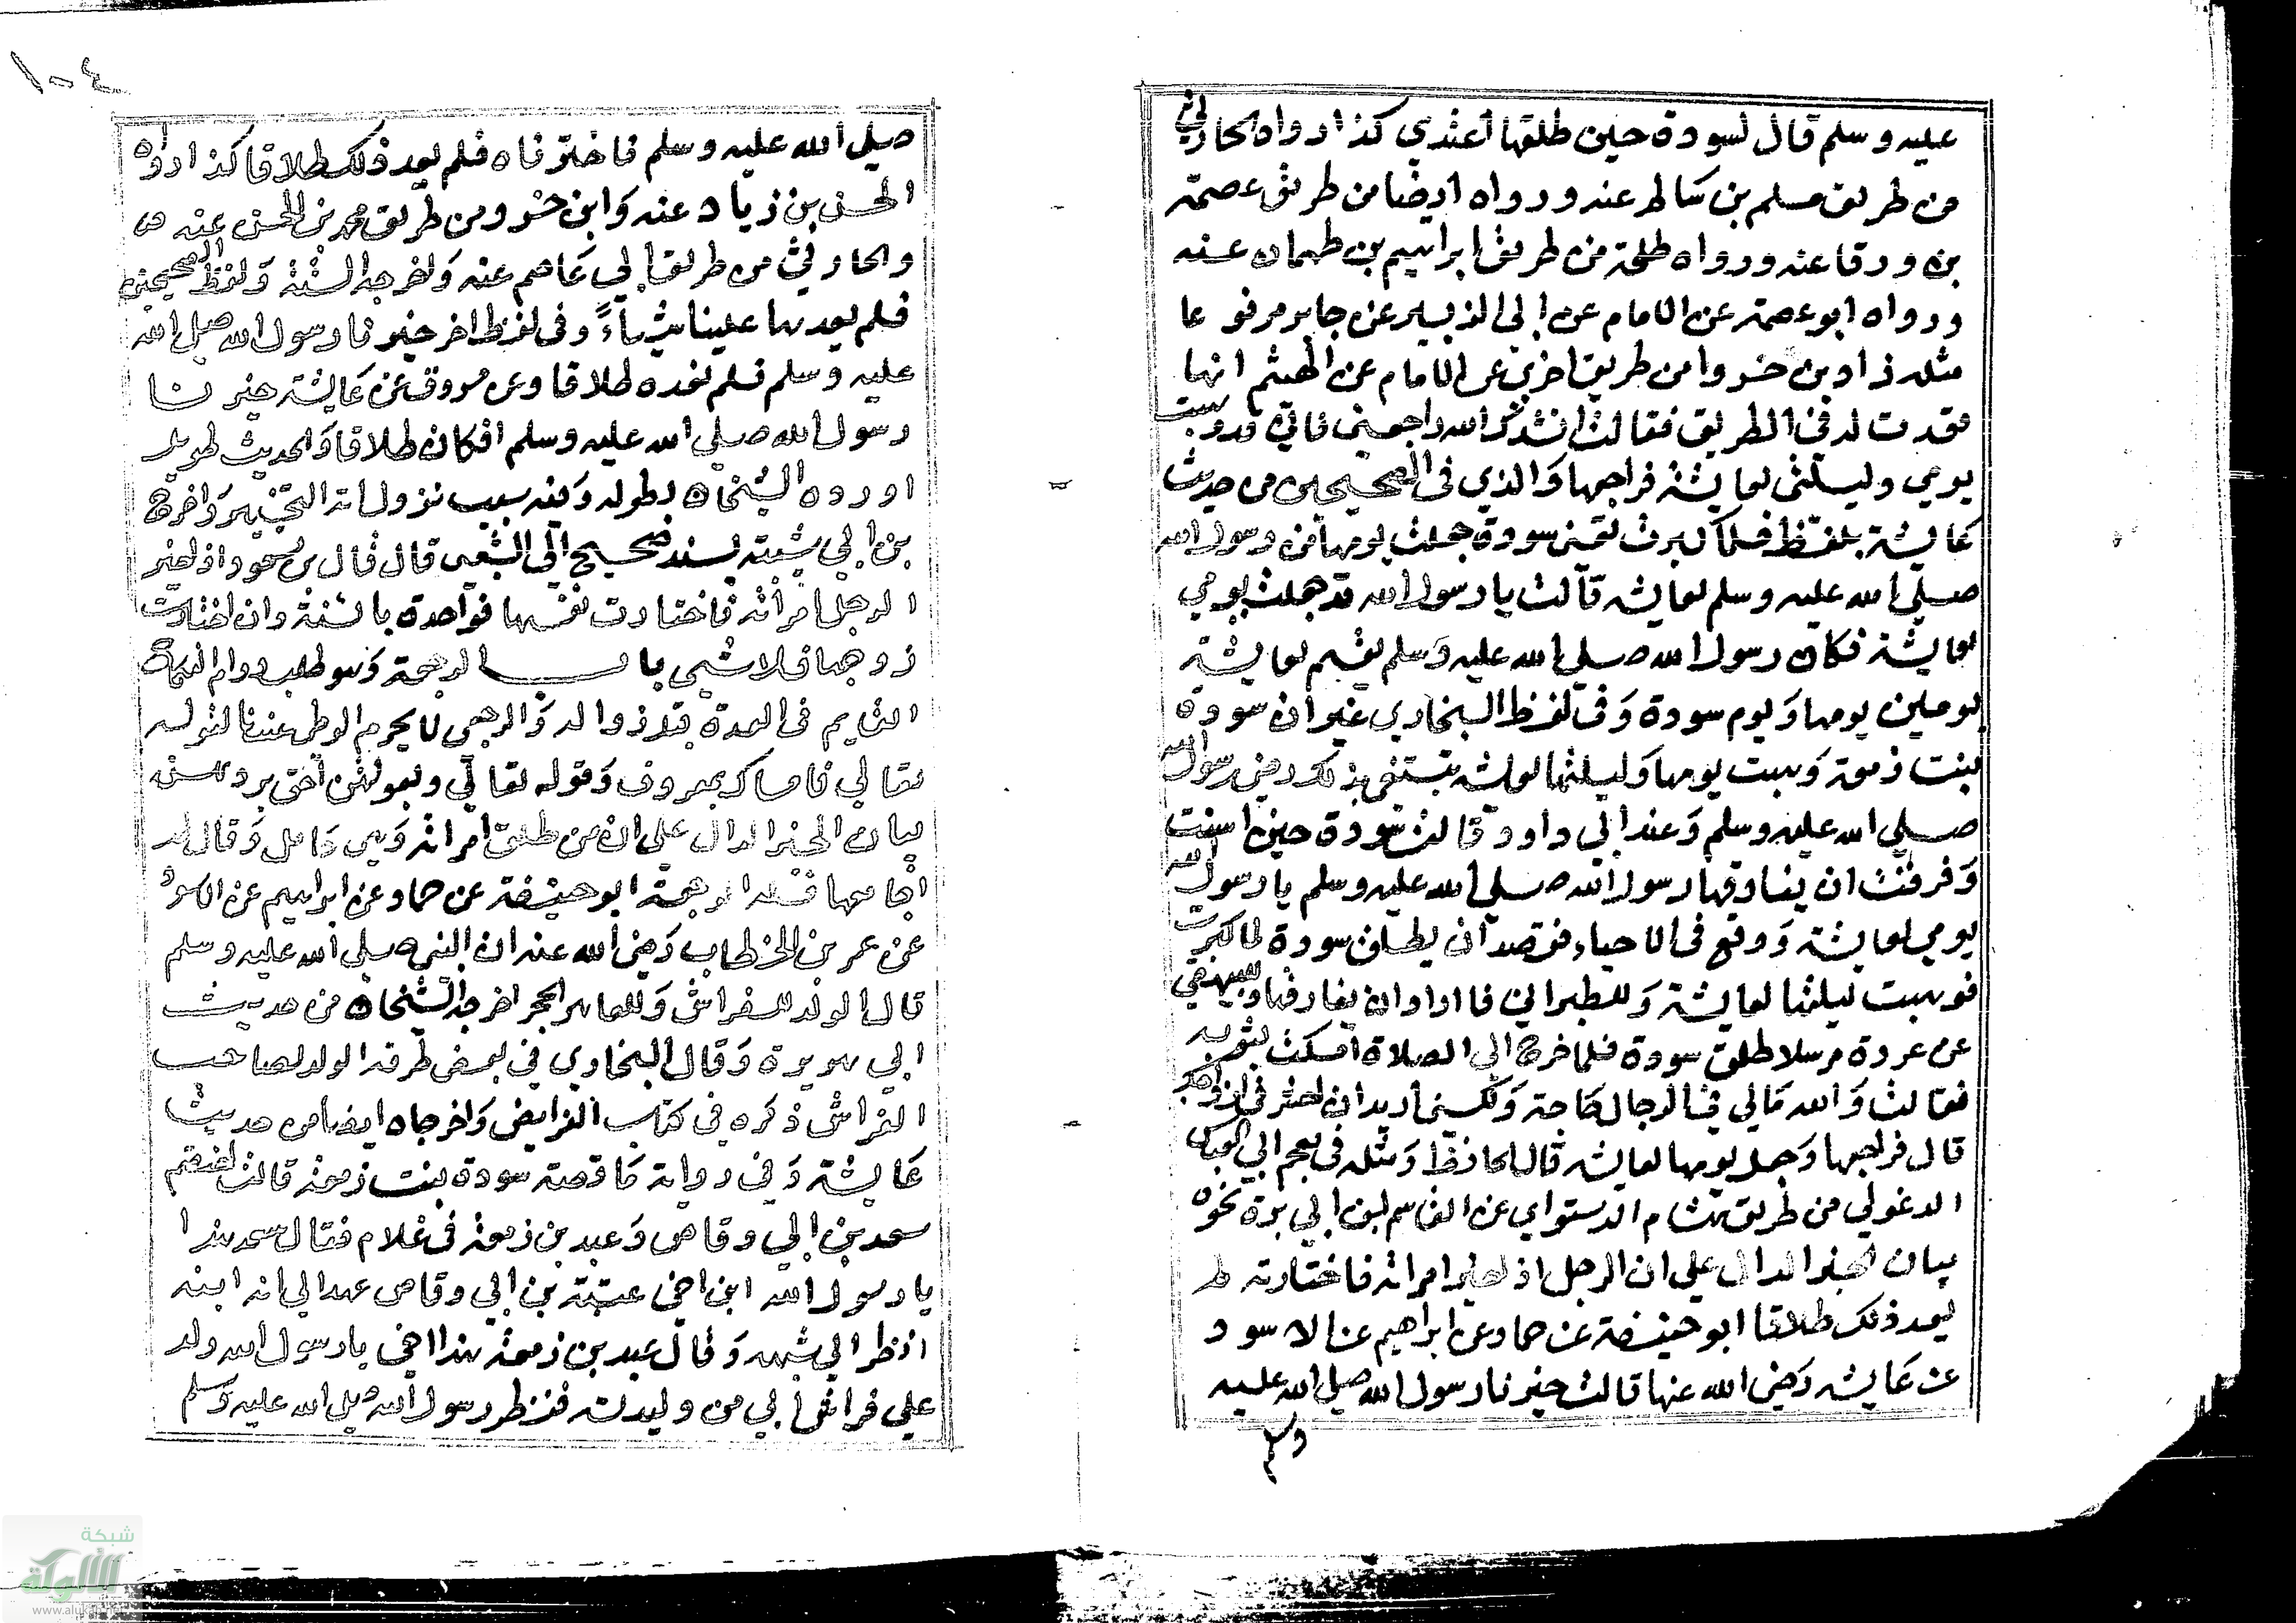 عليه وسلم قال لسودة حين طلقها اعتدي كذا رواه الحارثي
من طريق مسلم بن سالم عنه ورواه ايضا من طريق عصمة
بن ورقا عنه ورواه طلحة من طريق ابراهيم بن طهمان عنه
ورواه ابو عصمة عن الامام عن ابي الزبير عن جابر مرفوعا
مثله زاد بن خسروا من طريق اخري عن الامام عن الهيثم انها
قعدت له في الطريق فقالت انشدك الله راجعني فاني قد وهبت
يومي وليلتي لعايشة فراجعها والذي في الصحيحين من حديث
عايشة بلفظ فلما كبرت تعني سودة جعلت يومها من رسول الله
صلي الله عليه وسلم لعايشه قالت يا رسول الله قد جعلت يومي
لعايشة فكان رسول الله صلي الله عليه وسلم يقسم لعايشة
يومين يومها ويوم سودة وفي لفظ البخاري غير ان سودة
بنت زمعة وهبت يومها وليلتها لعايشه تبتغي بذلك رضي رسول الله
صلي الله عليه وسلم وعند ابي داود قالت سودة حين اسنت
وفرقت ان يفارقها رسول الله صلي الله عليه وسلم يا رسول الله
يومي لعايشة ووقع في الاحياء فقصد ان يطلق سودة لما كبرت
فوهبت ليلتها لعايشة وللطبراني فاراد ان يفارقها وللبيهقي
عن عروة مرسلا طلق سودة فلما خرج الي الصلاة امسكت بثوبه
فقالت والله مالي في الرجال حاجة ولكني اريد ان احشر في ازواجك
قال فراجعها وجعل يومها لعايشه قال الحافظ ومثله في معجم ابي العباس
الدغولي من طريق هشام الدستواي عن القاسم بن ابي بزة نحوه
بيان الخبر الدال علي ان الرجل اذا خير امراته فاختارته لم
يعد ذلك طلاقا ابو حنيفة عن حماد عن ابراهيم عن الاسود
عن عايشه رضي الله عنها قالت خيرنا رسول الله صلي الله عليه
١٠٤
صلي الله عليه وسلم فاخترناه فلم يعد ذلك طلاقا كذا رواه
الحسن بن زياد عنه وابن خسرو من طريق محمد بن الحسن عنه
والحارثي من طريق ابي عاصم عنه واخرجه الستة ولفظ الصحيحين
فلم يعدها علينا شيأً وفي لفظ اخر خيرنا رسول الله صلي الله
عليه وسلم فلم نعده طلاقا وعن مسروق عن عايشة خيرنا
رسول الله صلي الله عليه وسلم افكان طلاقا والحديث طويل
اورده الشيخان بطوله وفيه سبب نزول اية التخيير واخرج
بن ابي شيبة بسند صحيح الي الشعبي قال قال بن مسعود اذا خير
الرجل امراته فاختارت نفسها فواحدة باينة وان اختارت
زوجها فلا شيي باب الرجعة وهو طلب دوام النكاح
القايم في العدة قبل زواله والرجعي لا يحرم الوطي عندنا لقوله
تعالي فامساك بمعروف وقوله تعالي وبعولتهن احق بردهن
بيان الخبر الدال علي ان من طلق امراته وهي حامل وقال لم
اجامعها فله الرجعة ابو حنيفة عن حماد عن ابراهيم عن الاسود
عن عمر بن الخطاب رضي الله عنه ان النبي صلي الله عليه وسلم
قال الولد للفراش وللعاهر الحجر اخرجه الشيخان من حديث
ابي هريرة وقال البخاري في بعض طرقه الولد لصاحب
الفراش ذكره في كتاب الفرايض واخرجاه ايضا من حديث
عايشة وفي رواية قصة سودة بنت زمعة قالت اختصم
سعد بن ابي وقاص وعبد بن زمعة في غلام فقال سعد هذا
يا رسول الله ابن اخي عتبة بن ابي وقاص عهد الي انه ابنه
انظر الي شبهه وقال عبد بن زمعة هذا اخي يا رسول الله ولد
علي فراش ابي من وليدته فنظر رسول الله صلي الله عليه وسلم
شبكة
الألوكة